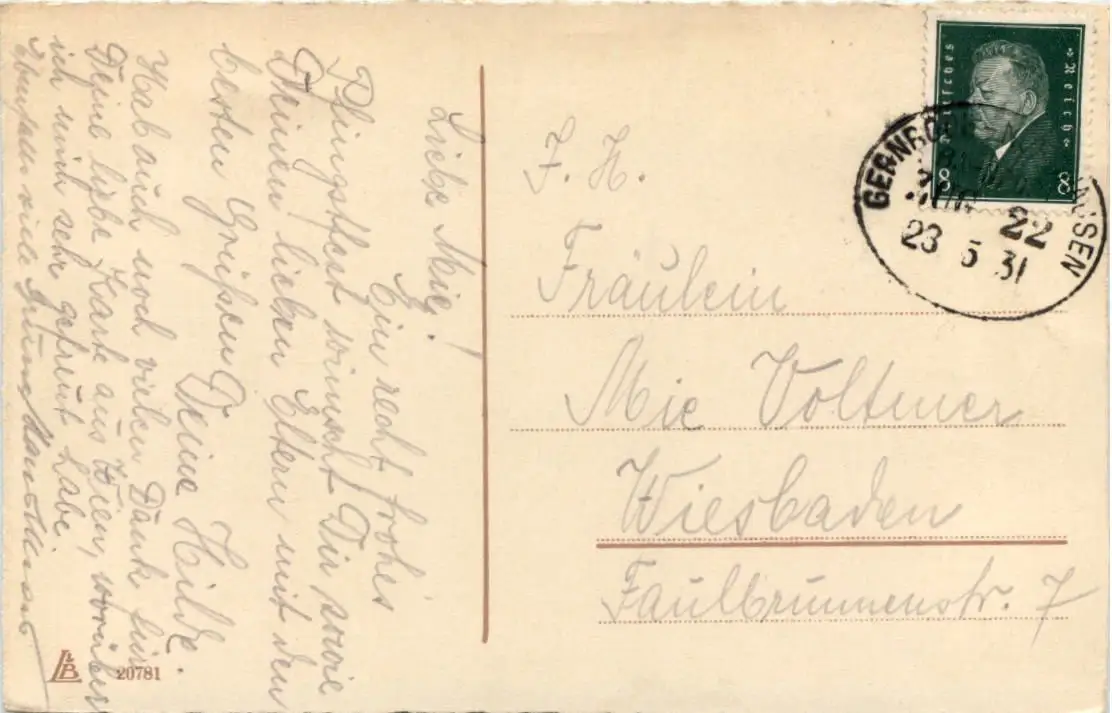 Liebe Mie!
Ein recht frohes
Pfingstfest wünscht Dir sowie
Deinen lieben Eltern mit den
besten Grüssen Deine Hilde.
Hab auch noch vielen Dank für
Deine liebe Karte aus Wien, worüber
ich mich sehr gefreut habe.
Ebenfalls viele Grüße
F. H.
Fräulein
Mie Voltmer
Wiesbaden
Faulbrunnenstr. 7
Deutsches Reich
8 8
GERNRODE
ZUG 22
23 5 31
20781